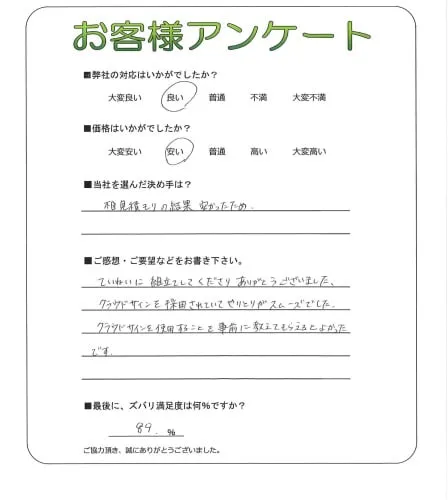 お客様アンケート
■弊社の対応はいかがでしたか？
大変良い 良い 普通 不満 大変不満
■価格はいかがでしたか？
大変安い 安い 普通 高い 大変高い
■当社を選んだ決め手は？
相見積もりの結果 安かったため.
■ご感想・ご要望などをお書き下さい。
ていねいに 組立てしてくださり ありがとうございました、
クラウドサインを 採用されていて やりとりが スムーズでした.
クラウドサインを使用することを 事前に 教えてもらえるとよかった
です.
■最後に、ズバリ満足度は何%ですか？
89. %
ご協力頂き、誠にありがとうございました。